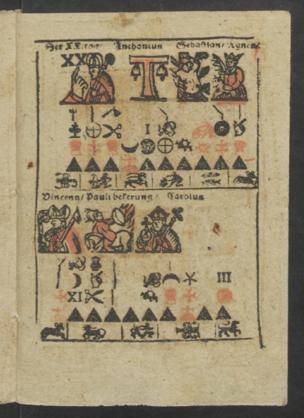 Anthonius Sebastian Agnes
XX T
I
Vincenz/ Pauli bekerung/ Carolus
III
XI